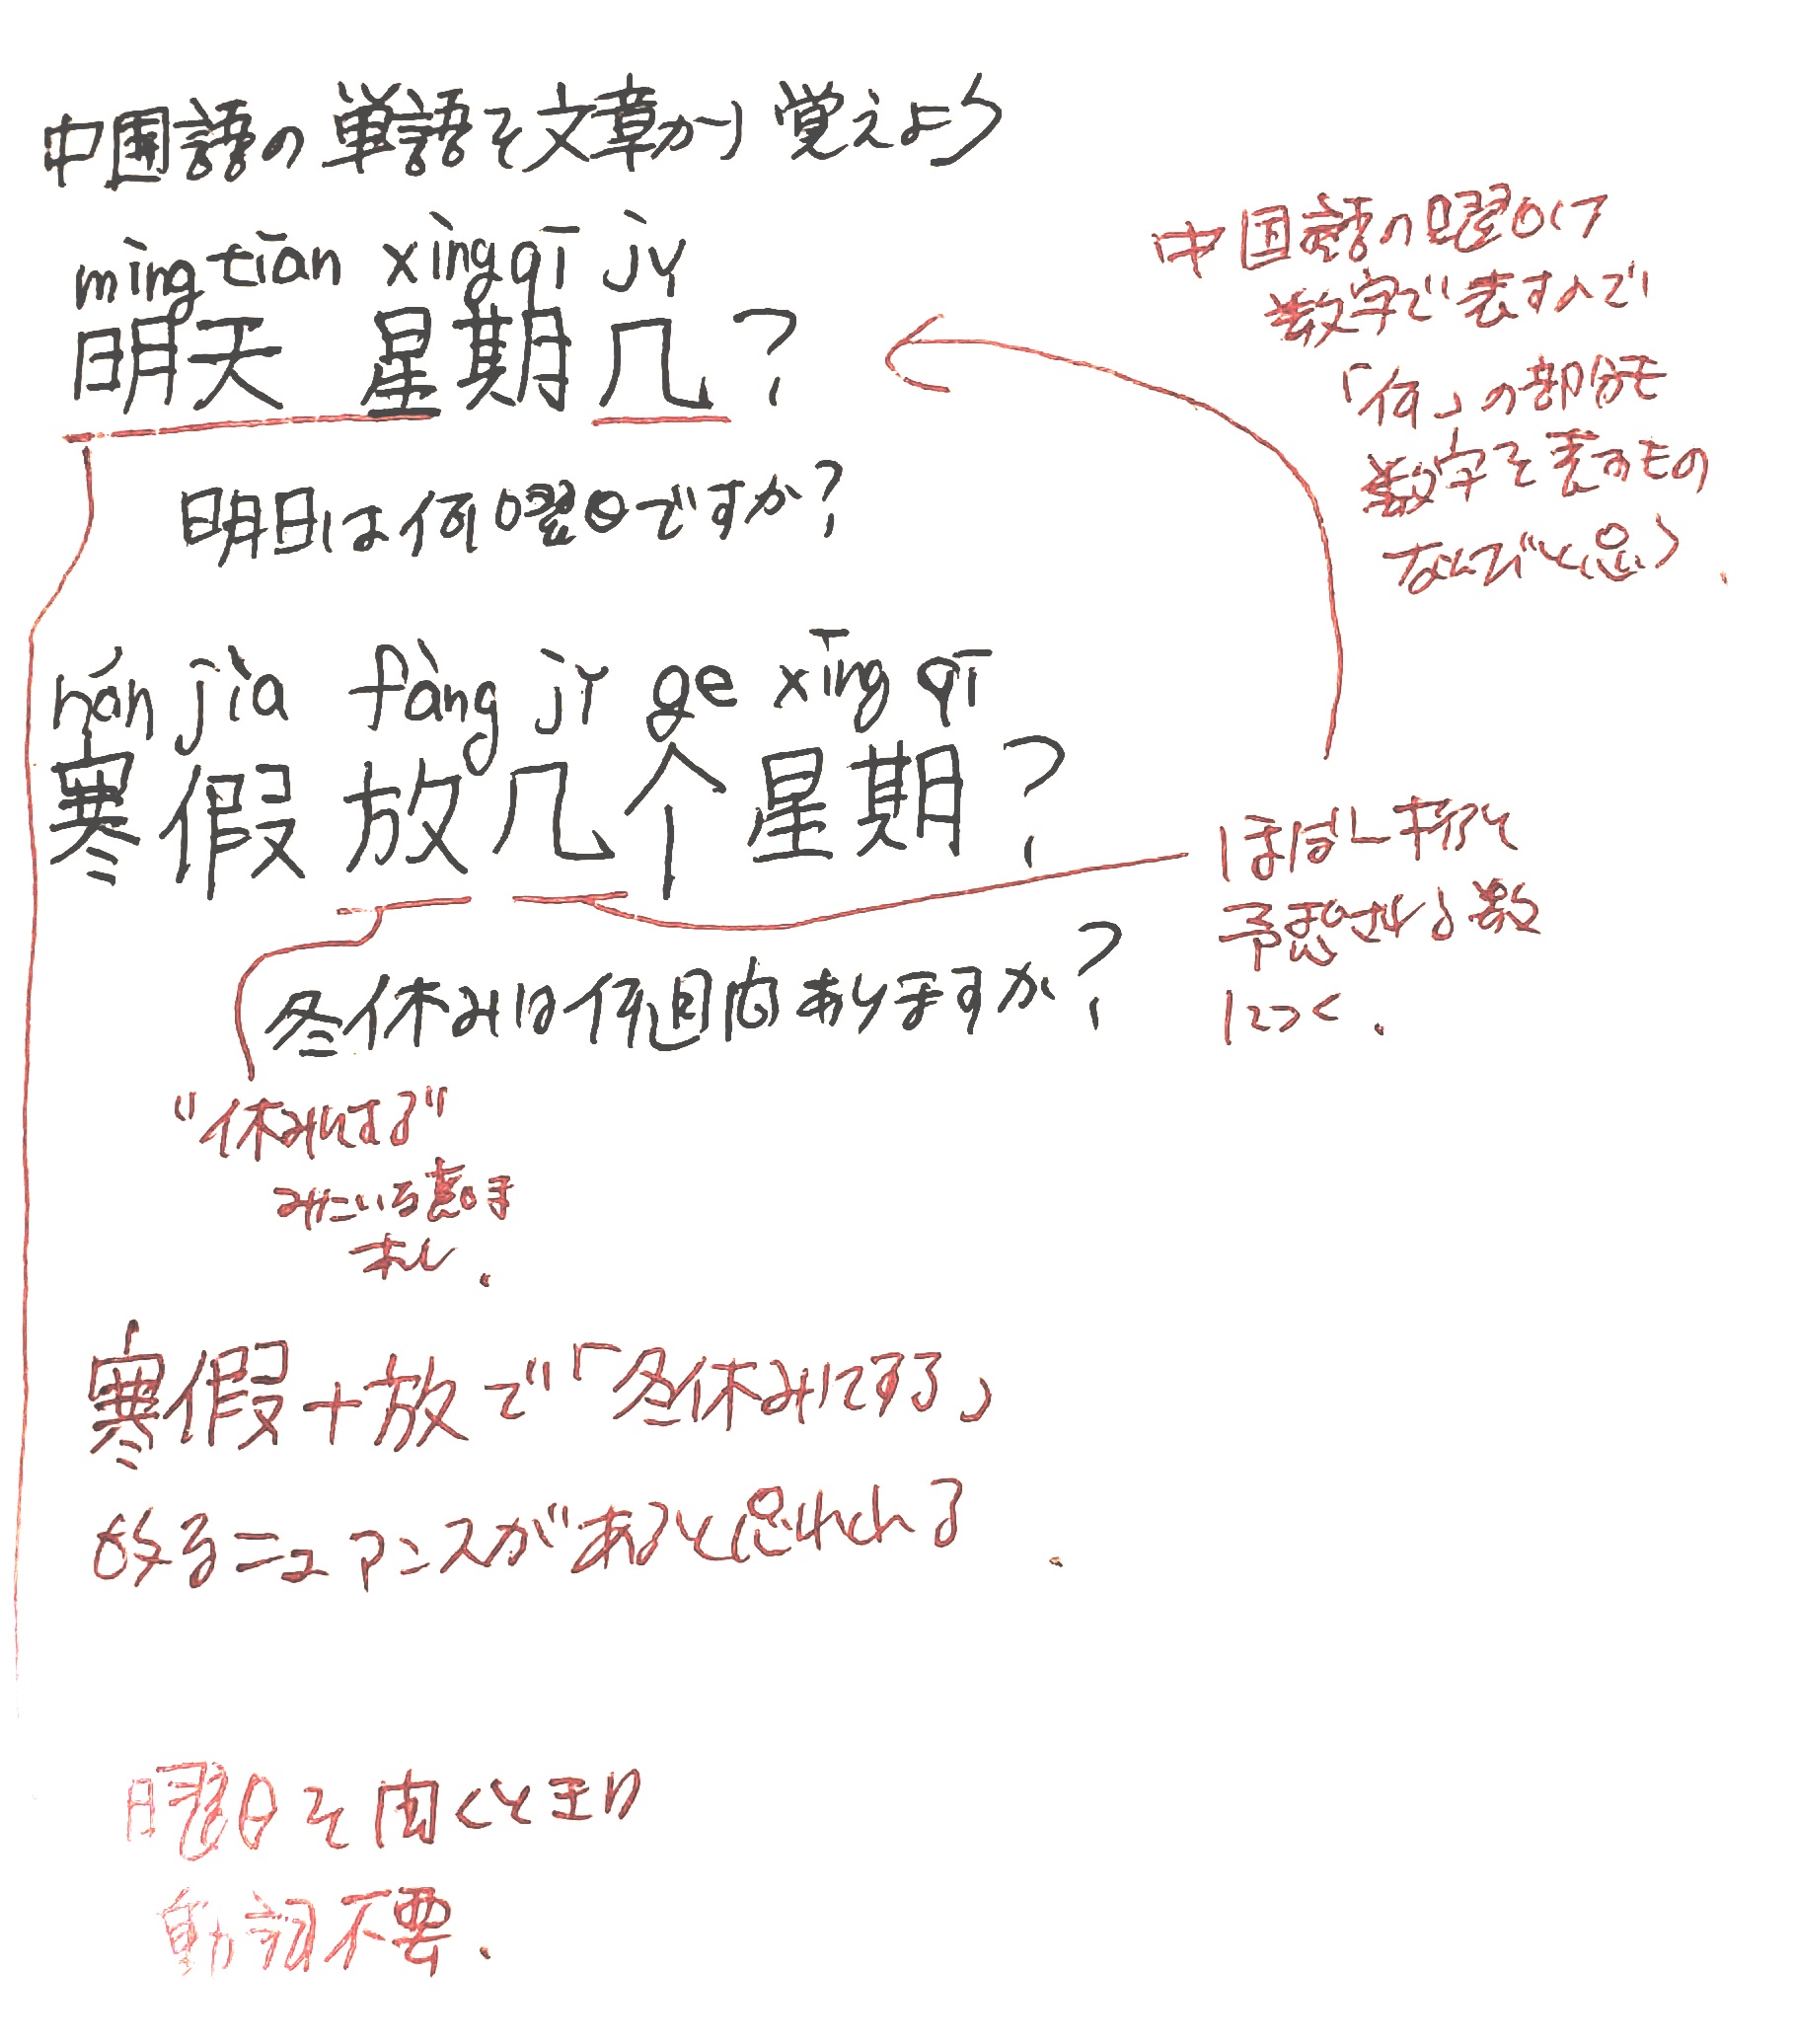 中国語の単語を文章から覚えよう
mìng tiān xìngqī jy
明天 星期几?
明日は何曜日ですか?
hán jià fàng jǐ ge xīng qī
寒假 放几个星期?
冬休みは何週間ありますか?
"休みにする"
みたいな意味
寒假+放で「冬休みにする」
的なニュアンスがあると思われる.
中国語の曜日は
数字で表すので
「何」の部分も
数字を表すもの
なんだと思う.
ほぼ一桁と
予想される数
につく.
曜日を聞くときは
動詞不要.